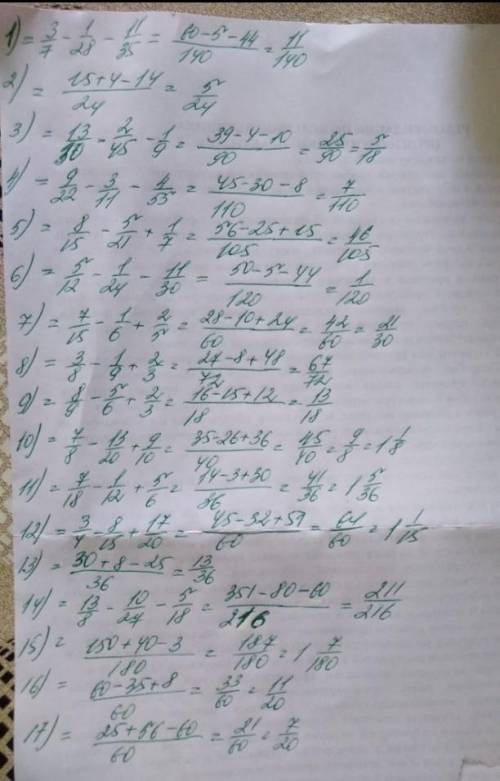 1) = 3/7 - 1/28 - 11/35 = (60-5-44)/140 = 11/140
2) = (15+4-14)/24 = 5/24
3) = 13/30 - 2/45 - 1/9 = (39-4-10)/90 = 25/90 = 5/18
4) = 9/22 - 3/11 - 4/55 = (45-30-8)/110 = 7/110
5) = 8/15 - 5/21 + 1/7 = (56-25+15)/105 = 46/105
6) = 5/12 - 1/24 - 11/30 = (50-5-44)/120 = 1/120
7) = 7/15 - 1/6 + 2/5 = (28-10+24)/60 = 42/60 = 21/30
8) = 3/8 - 1/9 + 2/3 = (27-8+48)/72 = 67/72
9) = 8/9 - 5/6 + 2/3 = (16-15+12)/18 = 13/18
10) = 7/8 - 13/20 + 9/10 = (35-26+36)/40 = 45/40 = 9/8 = 1 1/8
11) = 7/18 - 1/12 + 5/6 = (14-3+30)/36 = 41/36 = 1 5/36
12) = 3/4 - 8/15 + 17/20 = (45-32+51)/60 = 64/60 = 1 1/15
13) = (30+8-25)/36 = 13/36
14) = 13/8 - 10/24 - 5/18 = (351-80-60)/216 = 211/216
15) = (150+40-3)/180 = 187/180 = 1 7/180
16) = (60-35+8)/60 = 33/60 = 11/20
17) = (25+56-60)/60 = 21/60 = 7/20